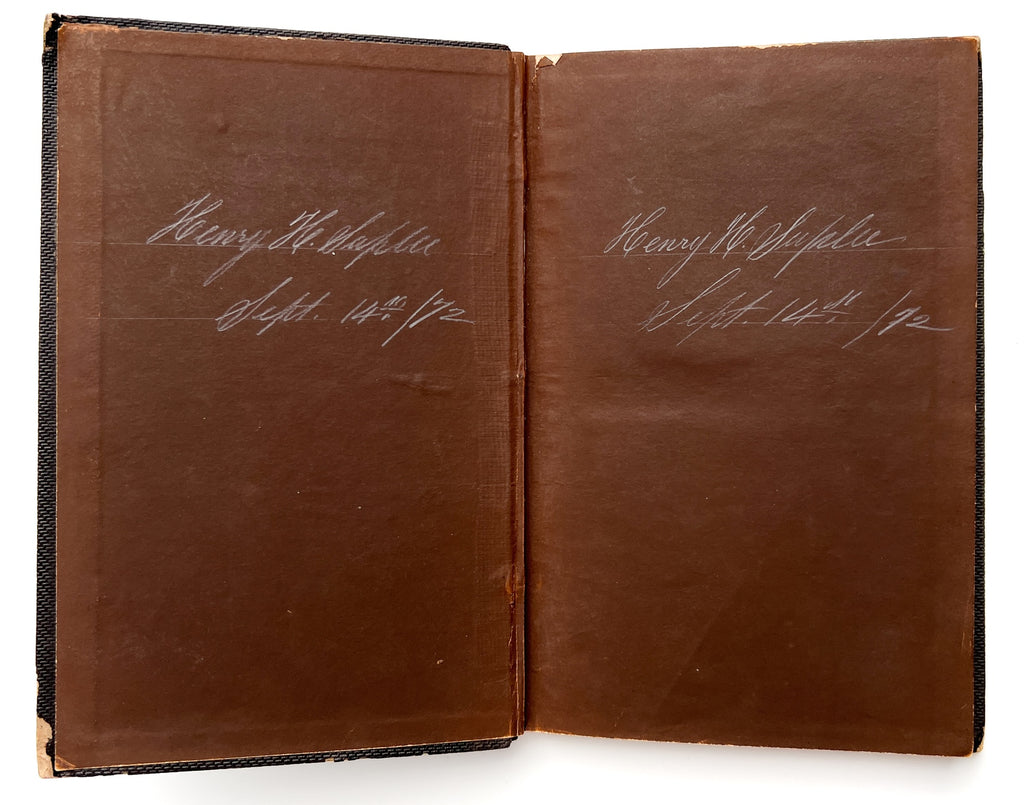 Henry H. Suplee
Sept. 14th /72
Henry H. Suplee
Sept. 14th /72